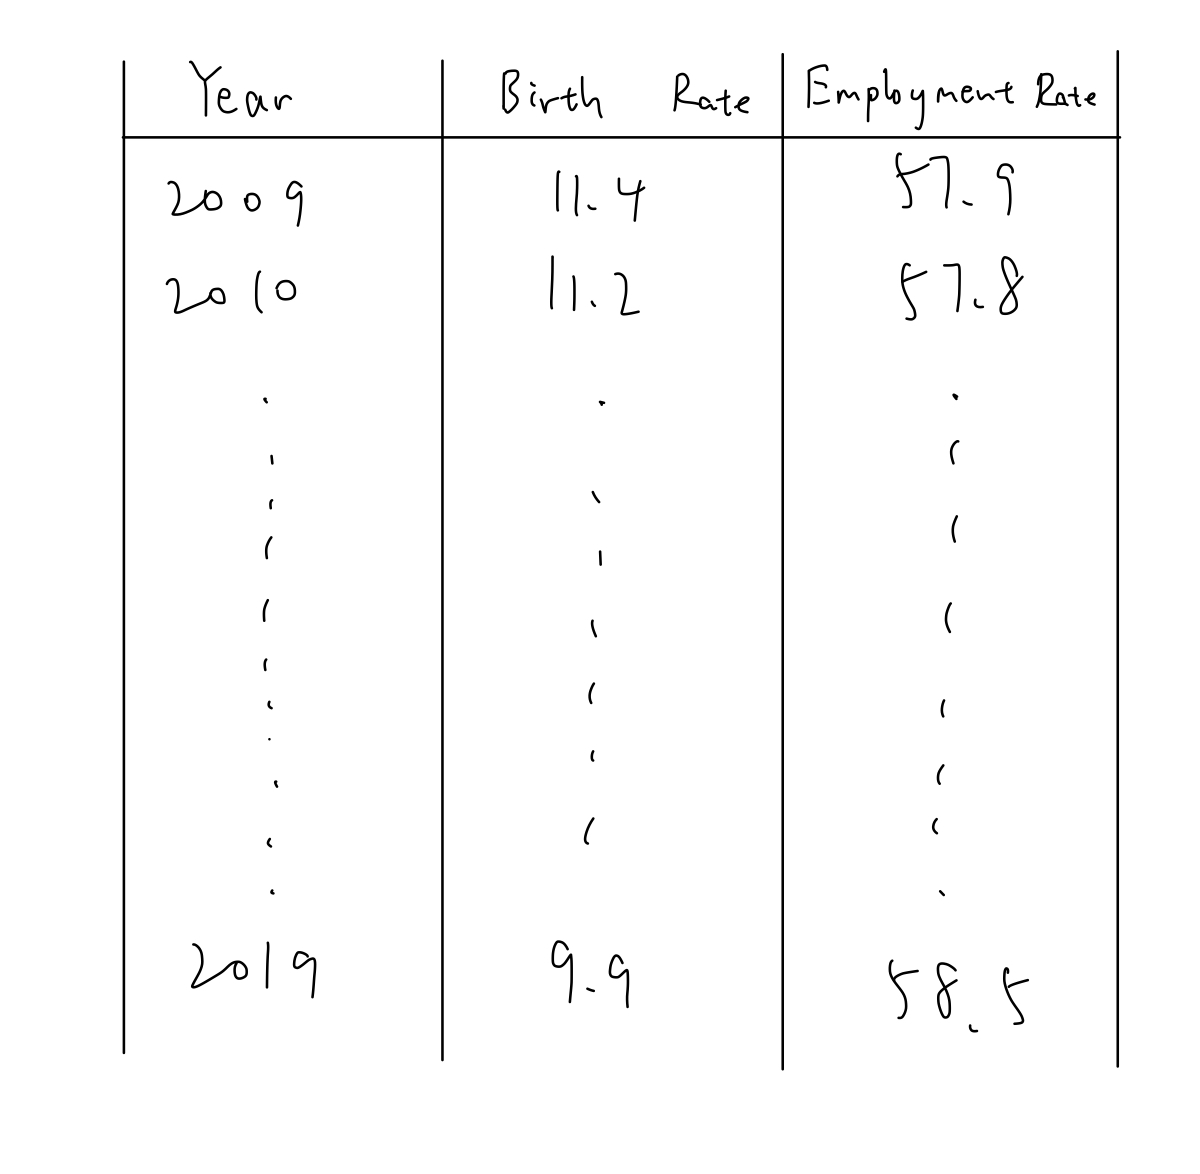 Year Birth Rate Employment Rate
2009 11.4 57.9
2010 11.2 57.8
2019 9.9 58.5